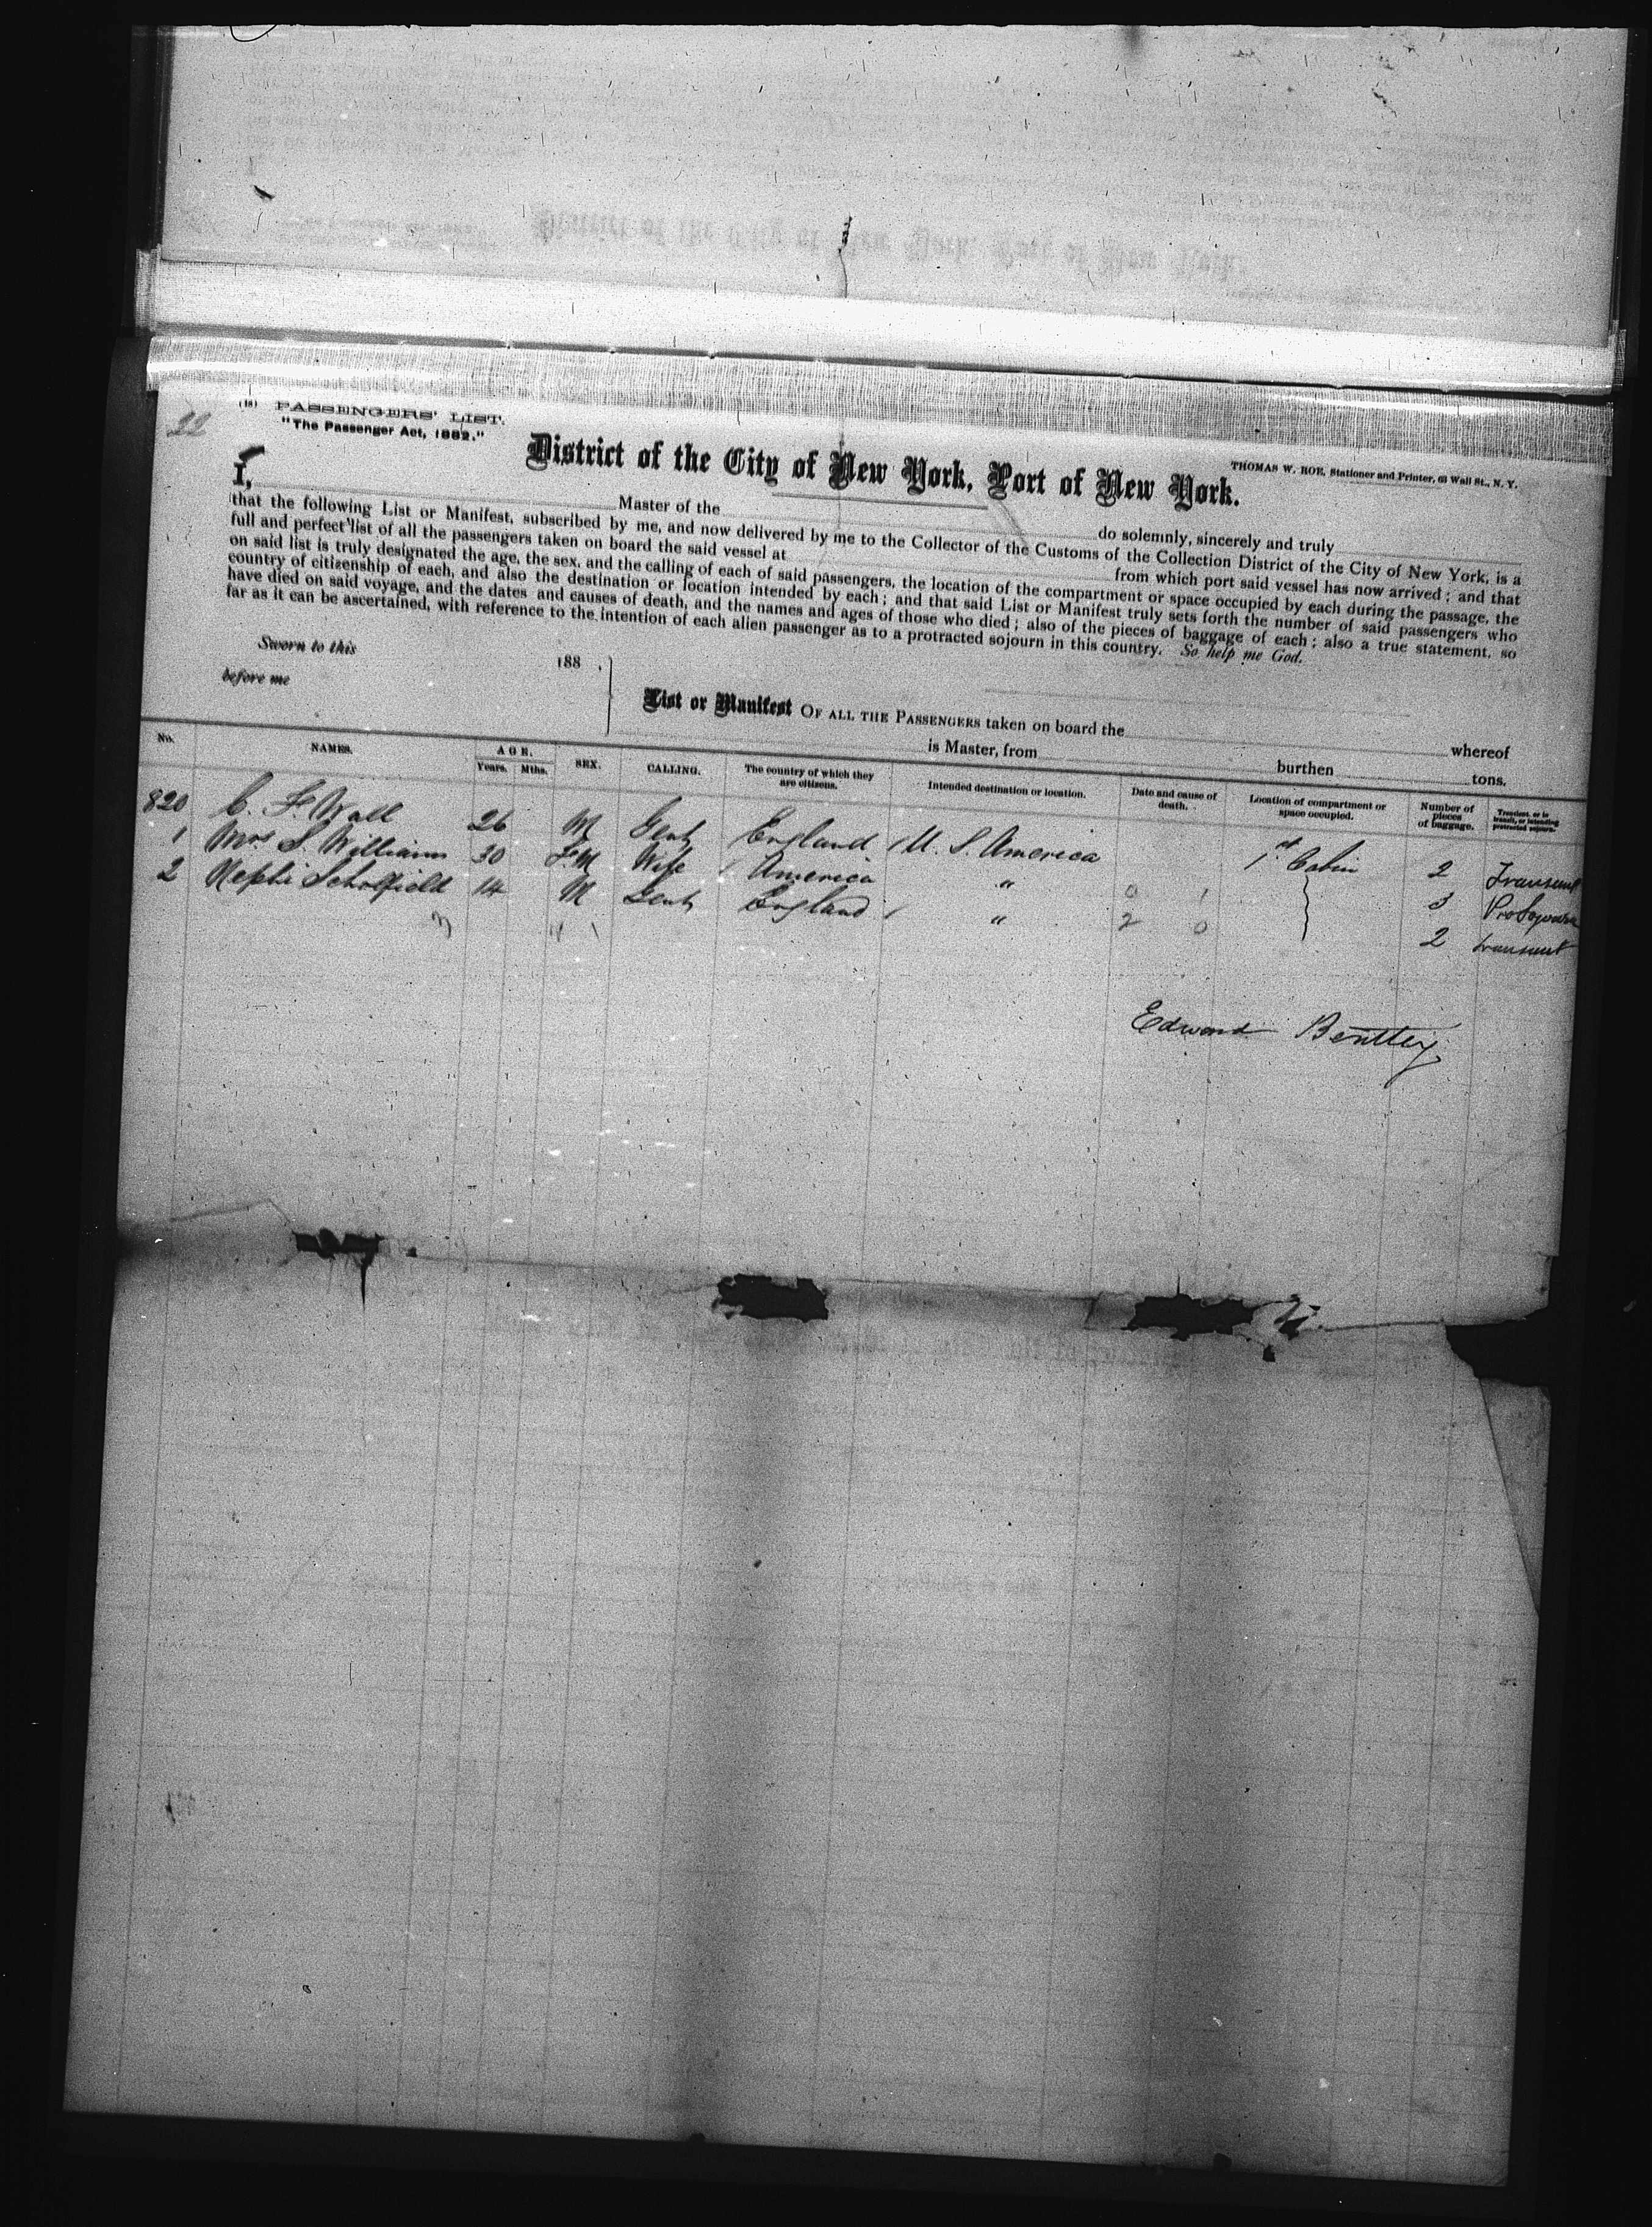 22
(18) PASSENGERS' LIST.
"The Passenger Act, 1882."
THOMAS W. ROE, Stationer and Printer, 63 Wall St., N. Y.
District of the City of New York, Port of New York.
I, Master of the do solemnly, sincerely and truly
that the following List or Manifest, subscribed by me, and now delivered by me to the Collector of the Customs of the Collection District of the City of New York, is a
full and perfect list of all the passengers taken on board the said vessel at from which port said vessel has now arrived; and that
on said list is truly designated the age, the sex, and the calling of each of said passengers, the location of the compartment or space occupied by each during the passage, the
country of citizenship of each, and also the destination or location intended by each; and that said List or Manifest truly sets forth the number of said passengers who
have died on said voyage, and the dates and causes of death, and the names and ages of those who died; also of the pieces of baggage of each; also a true statement, so
far as it can be ascertained, with reference to the intention of each alien passenger as to a protracted sojourn in this country. So help me God.
Sworn to this 188 .
before me
List or Manifest OF ALL THE PASSENGERS taken on board the whereof
is Master, from burthen tons.
No. NAMES. AGE. Years. Mths. SEX. CALLING. The country of which they are citizens. Intended destination or location. Date and cause of death. Location of compartment or space occupied. Number of pieces of baggage. Transient, or in transit, or intending protracted sojourn.
820 C. F. Wall 26 M Gent England U. S. America 1st Cabin 2 Transient
1 Mrs S. Williams 30 F M Wife America " 3
2 Nephi Scholfield 14 M Gent England " 2 transient
Edward Benttey